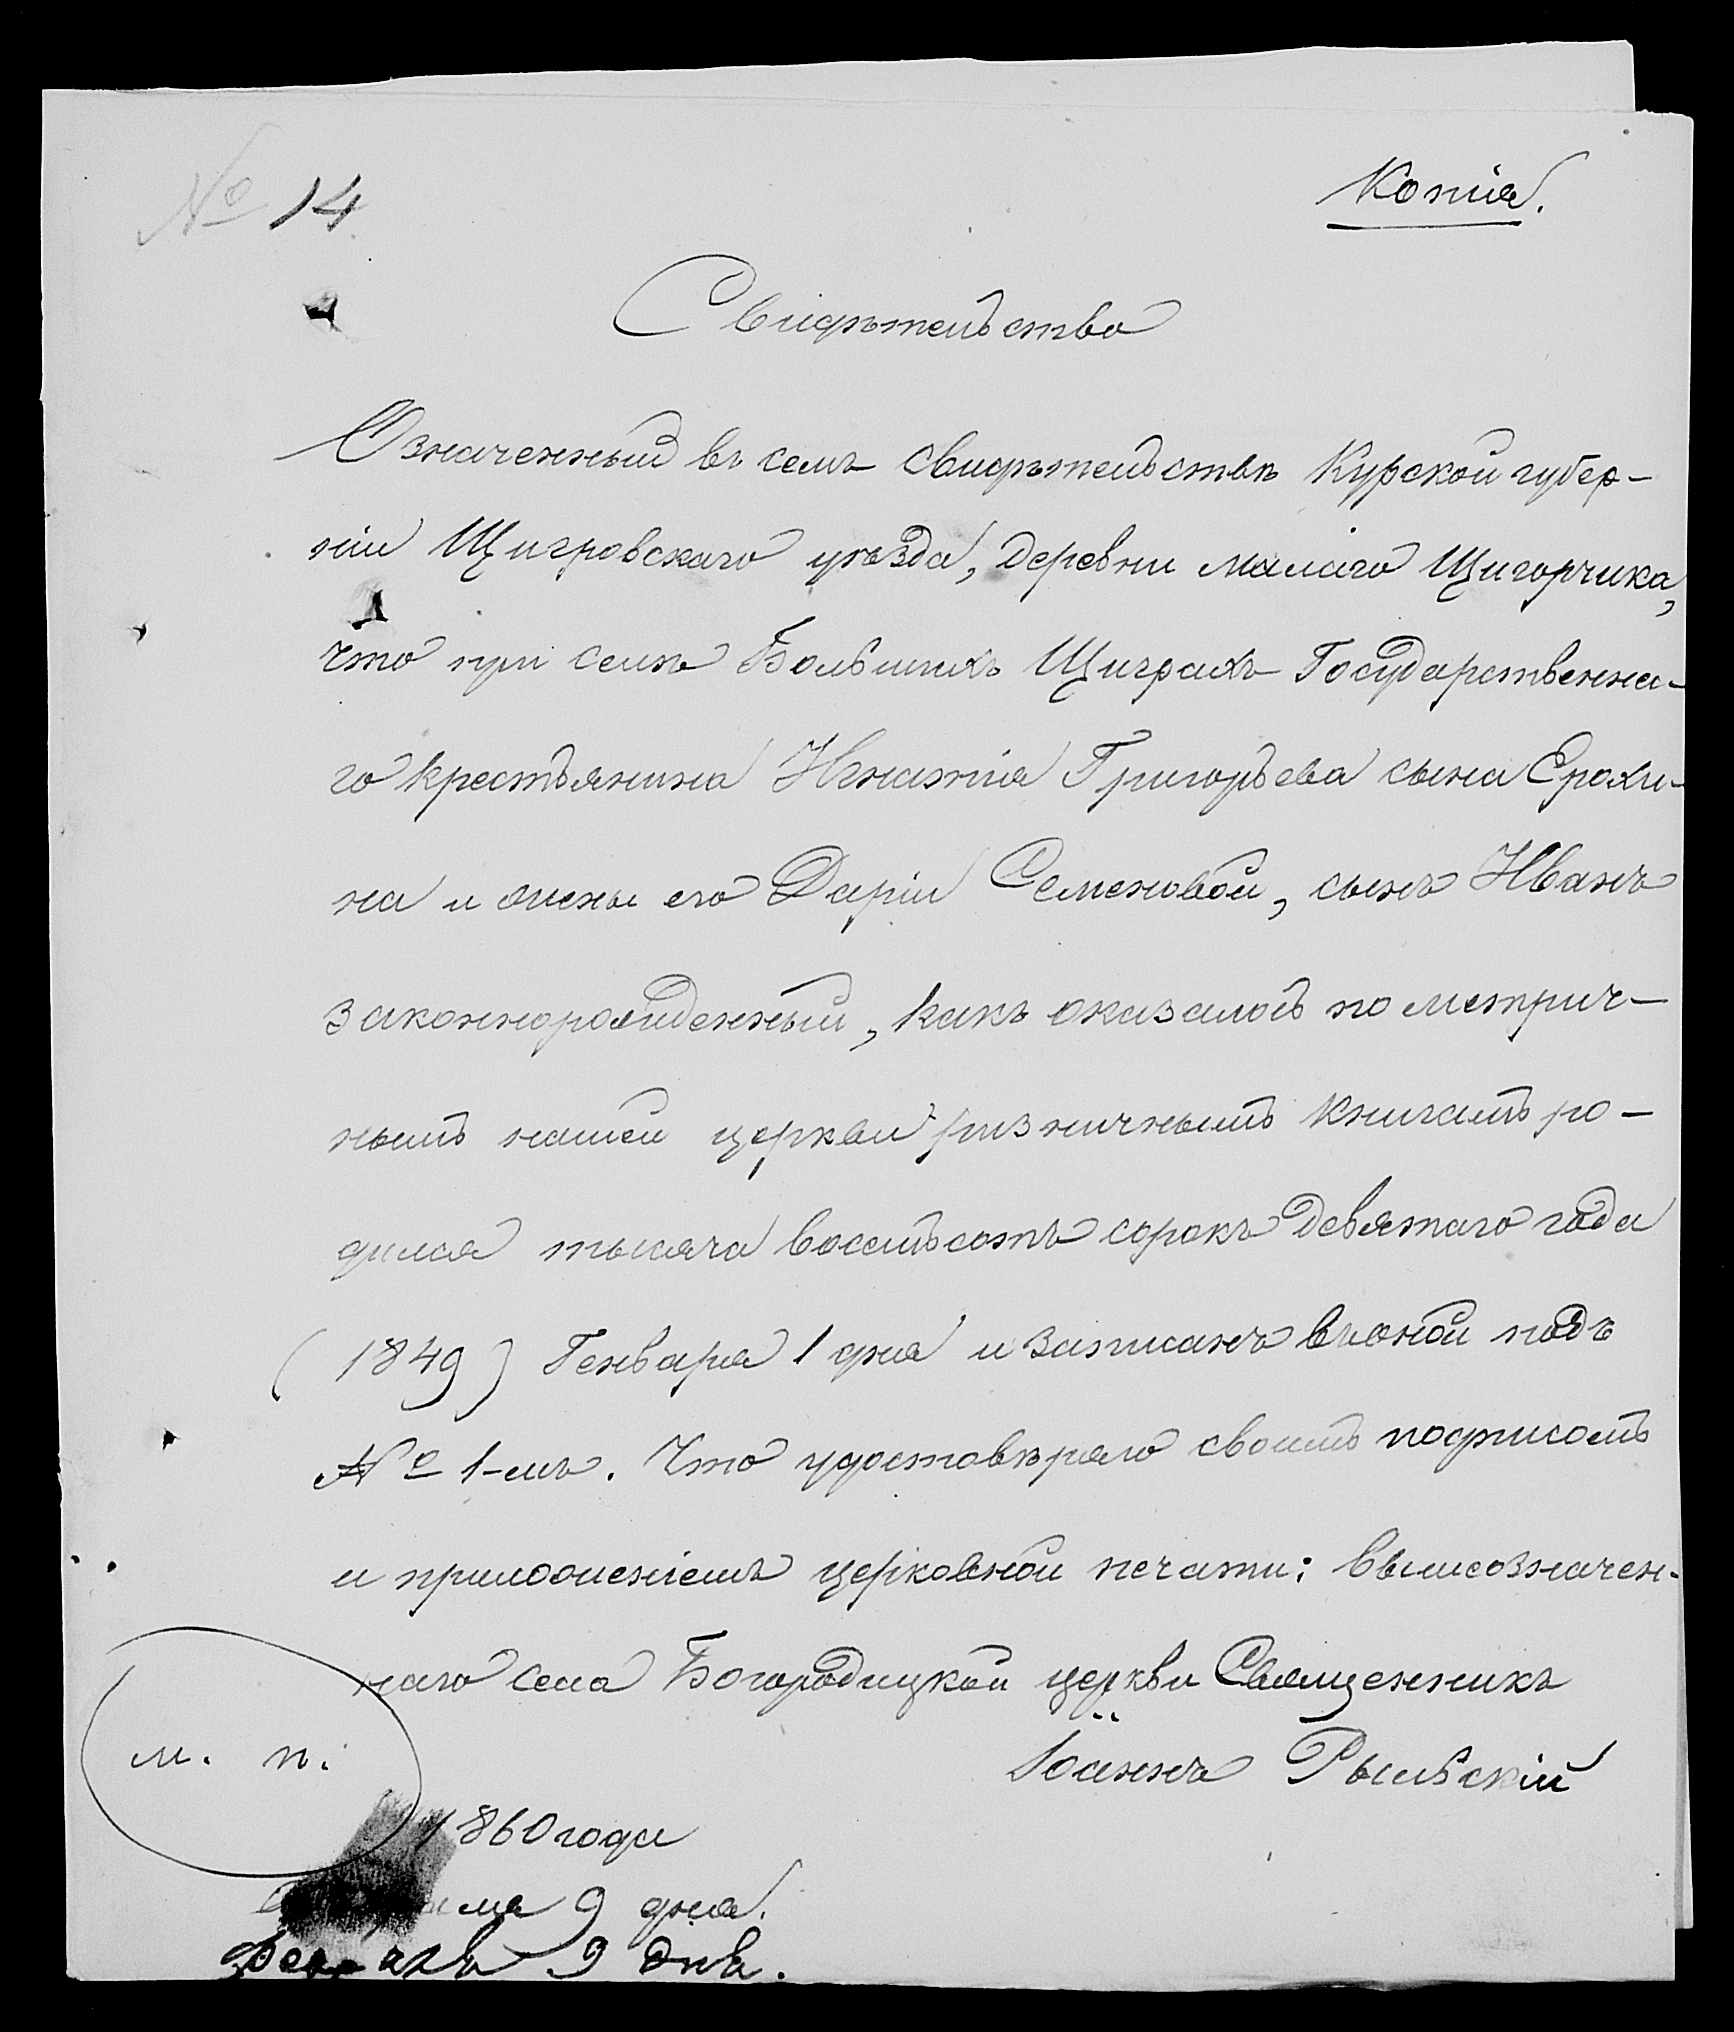 № 14
Копія.
Свидѣтельство
Означенный въ семъ свидѣтельствѣ Курской губер-
ніи Щигровскаго уѣзда, деревни малаго Щигорчика,
что при селѣ Большихъ Щиграхъ Государственна-
го крестьянина Игнатія Григорьева сына Ерохи-
на и жены его Даріи Семеновой, сынъ Иванъ
законнорожденный, какъ оказалось по метрич-
нымъ нашей церкви ризничнымъ книгамъ ро-
дился тысяча восемьсотъ сорокъ девятаго года
(1849) Генваря 1 дня и записанъ въ оной подъ
№ 1-мъ. Что удостовѣряю своимъ подписомъ
и приложеніемъ церковной печати: вышеозначен-
наго села Богородицкой церкви Священникъ
Іоаннъ Рыльскій
м. п.
1860 года
9 дня.
9 дня.